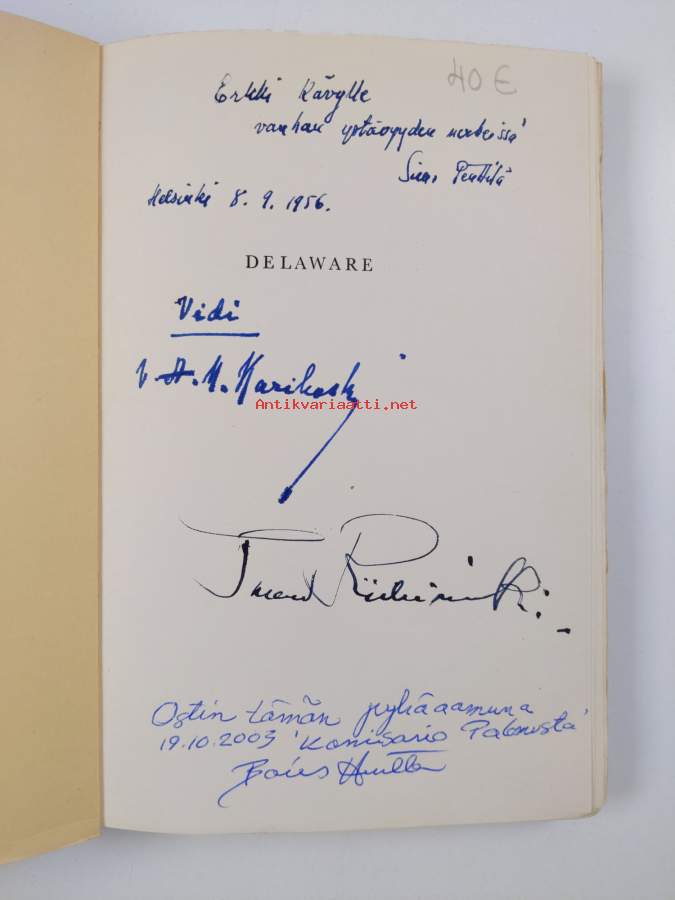 40 €
Erkki Kävylle
vanhan ystävyyden merkeissä
Simo Penttilä
Helsinki 8. 9. 1956.
DELAWARE
Vidi
V. A. M. Karikoski
Antikvariaatti.net
Ostin tämän pyhäaamuna
19.10.2003 'Komisario Palmusta'